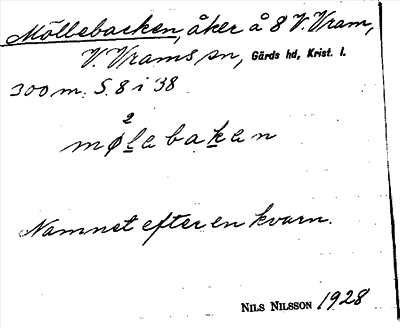 Möllebacken, åker å 8 V. Vram,
V. Vrams sn, Gärds hd, Krist. l.
300 m. S. 8 i '38
2
møle bakan
Namnet efter en kvarn.
NILS NILSSON 1928